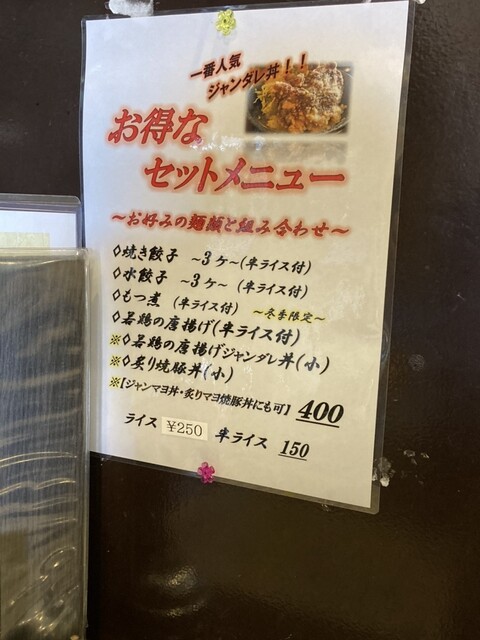 一番人気
ジャンダレ丼！！
お得な
セットメニュー
～お好みの麺類と組み合わせ～
◊焼き餃子 ～3ケ～(半ライス付)
◊水餃子 ～3ケ～ (半ライス付)
◊もつ煮 (半ライス付) ～冬季限定～
◊若鶏の唐揚げ(半ライス付)
※◊若鶏の唐揚げジャンダレ丼(小)
※◊炙り焼豚丼(小)
※【ジャンマヨ丼・炙りマヨ焼豚丼にも可】 400
ライス ¥250 半ライス 150